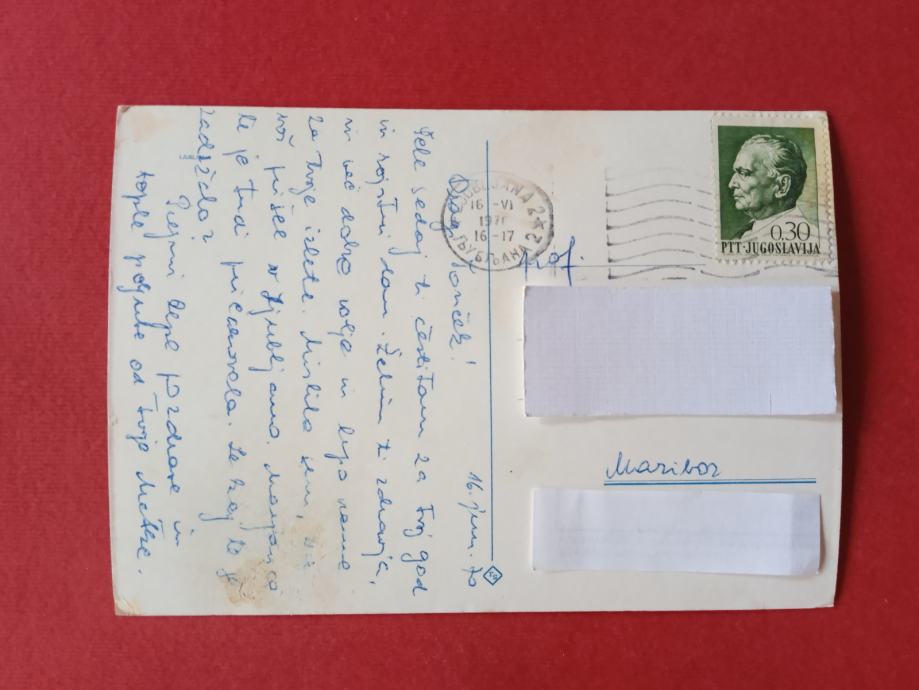 16. jun. 70
Dragi Tonček!
Šele sedaj ti čestitam za tvoj god
in rojstni dan. Želim ti zdravja,
in več dobre volje in lepo vreme
za tvoje izlete. Mislila sem, da
boš prišel v Ljubljano. Marjanca
te je tudi pričakovala. Le kaj te je
zadržalo?
Prejmi lepe pozdrave in
tople poljube od tvoje Metke.
LJUBLJANA 2
16 -VI
1970
16-17
ЉУБЉАНА 2
0.30
PTT·JUGOSLAVIJA
Maribor